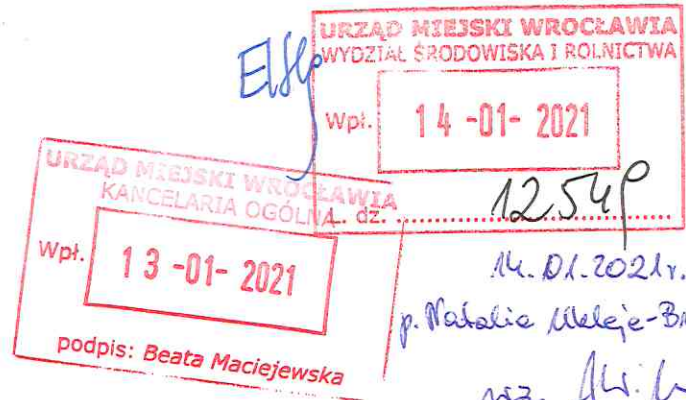 URZĄD MIEJSKI WROCŁAWIA
WYDZIAŁ ŚRODOWISKA I ROLNICTWA
Wpł. 14 -01- 2021
L. dz. ........................
URZĄD MIEJSKI WROCŁAWIA
KANCELARIA OGÓLNA
Wpł. 13 -01- 2021
podpis: Beata Maciejewska
14.01.2021r.
p. Natalia